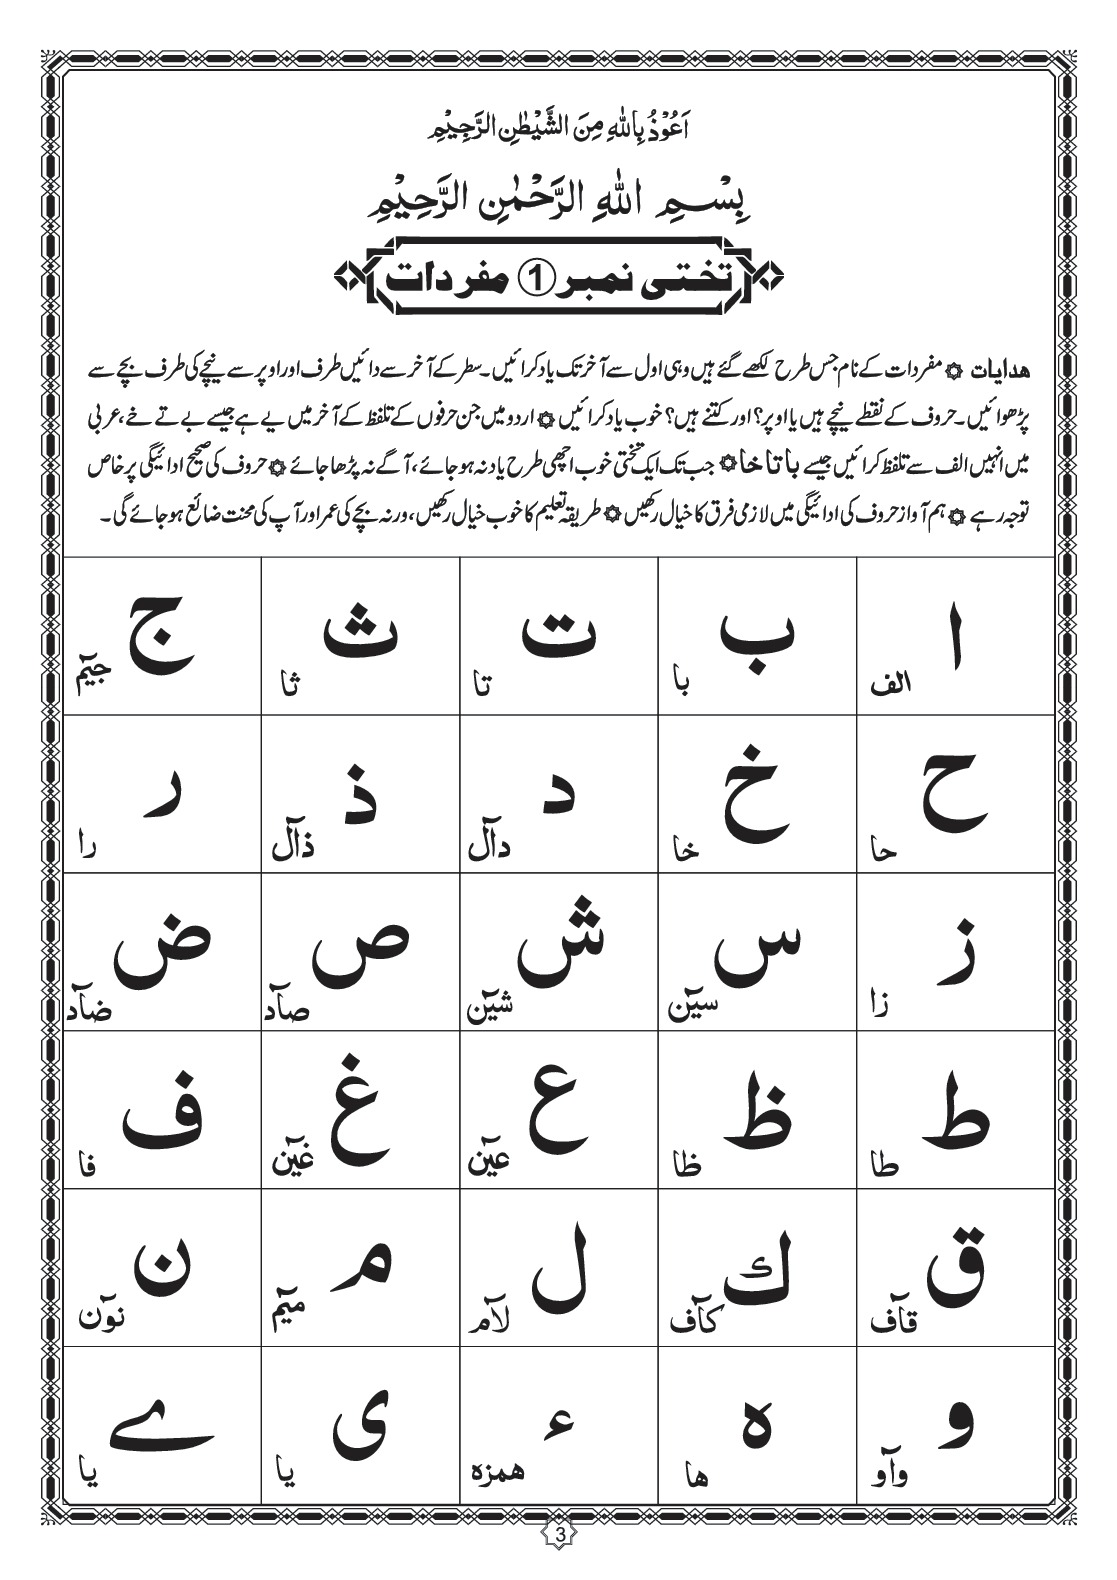 اَعُوْذُ بِاللّٰهِ مِنَ الشَّيْطٰنِ الرَّجِيْمِ
بِسْمِ اللّٰهِ الرَّحْمٰنِ الرَّحِيْمِ
تختی نمبر 1 مفردات
ھدایات ۞ مفردات کے نام جس طرح لکھے گئے ہیں وہی اول سے آخر تک یاد کرائیں۔ سطر کے آخر سے دائیں طرف اور اوپر سے نیچے کی طرف بچے سے
پڑھوائیں۔ حروف کے نقطے نیچے ہیں یا اوپر؟ اور کتنے ہیں؟ خوب یاد کرائیں ۞ اردو میں جن حرفوں کے تلفظ کے آخر میں یے ہے جیسے بے تے خے، عربی
میں انہیں الف سے تلفظ کرائیں جیسے با تا خا ۞ جب تک ایک تختی خوب اچھی طرح یاد نہ ہو جائے، آگے نہ پڑھا جائے ۞ حروف کی صحیح ادائیگی پر خاص
توجہ رہے ۞ ہم آواز حروف کی ادائیگی میں لازمی فرق کا خیال رکھیں ۞ طریقہ تعلیم کا خوب خیال رکھیں، ورنہ بچے کی عمر اور آپ کی محنت ضائع ہو جائے گی۔
ا ب ت ث ج
الف با تا ثا جیٓم
ح خ د ذ ر
حا خا دآل ذآل را
ز س ش ص ض
زا سیٓن شیٓن صآد ضآد
ط ظ ع غ ف
طا ظا عیٓن غیٓن فا
ق ك ل م ن
قآف کآف لآم میٓم نوٓن
و ہ ء ی ے
وآو ھا ھمزہ یا یا
3